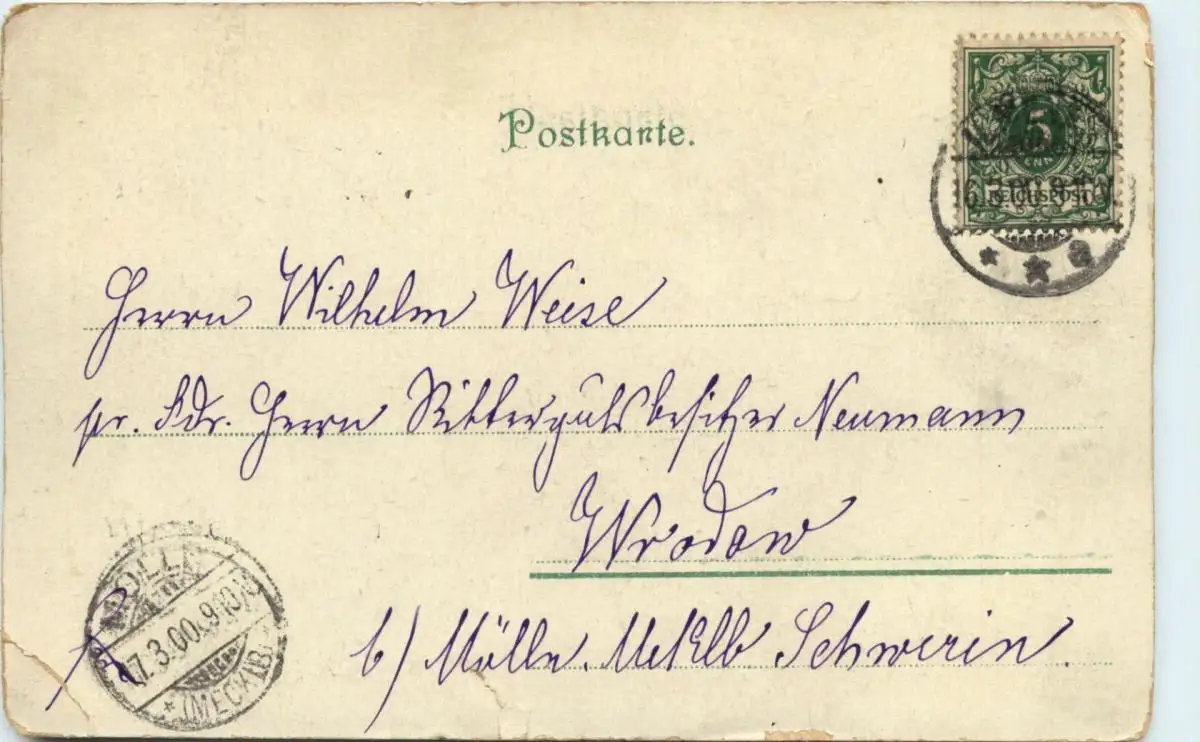 Postkarte.
5
REICHSPOST
16.3.00. 9-10V.
* * a
Herrn Wilhelm Weise
pr. Adr. Herrn Rittergutsbesitzer Neumann
Wrodow
b/ Mölln. Meklb Schwerin.
MÖLLN
17.3.00. 9-10V.
* (MECKLB)